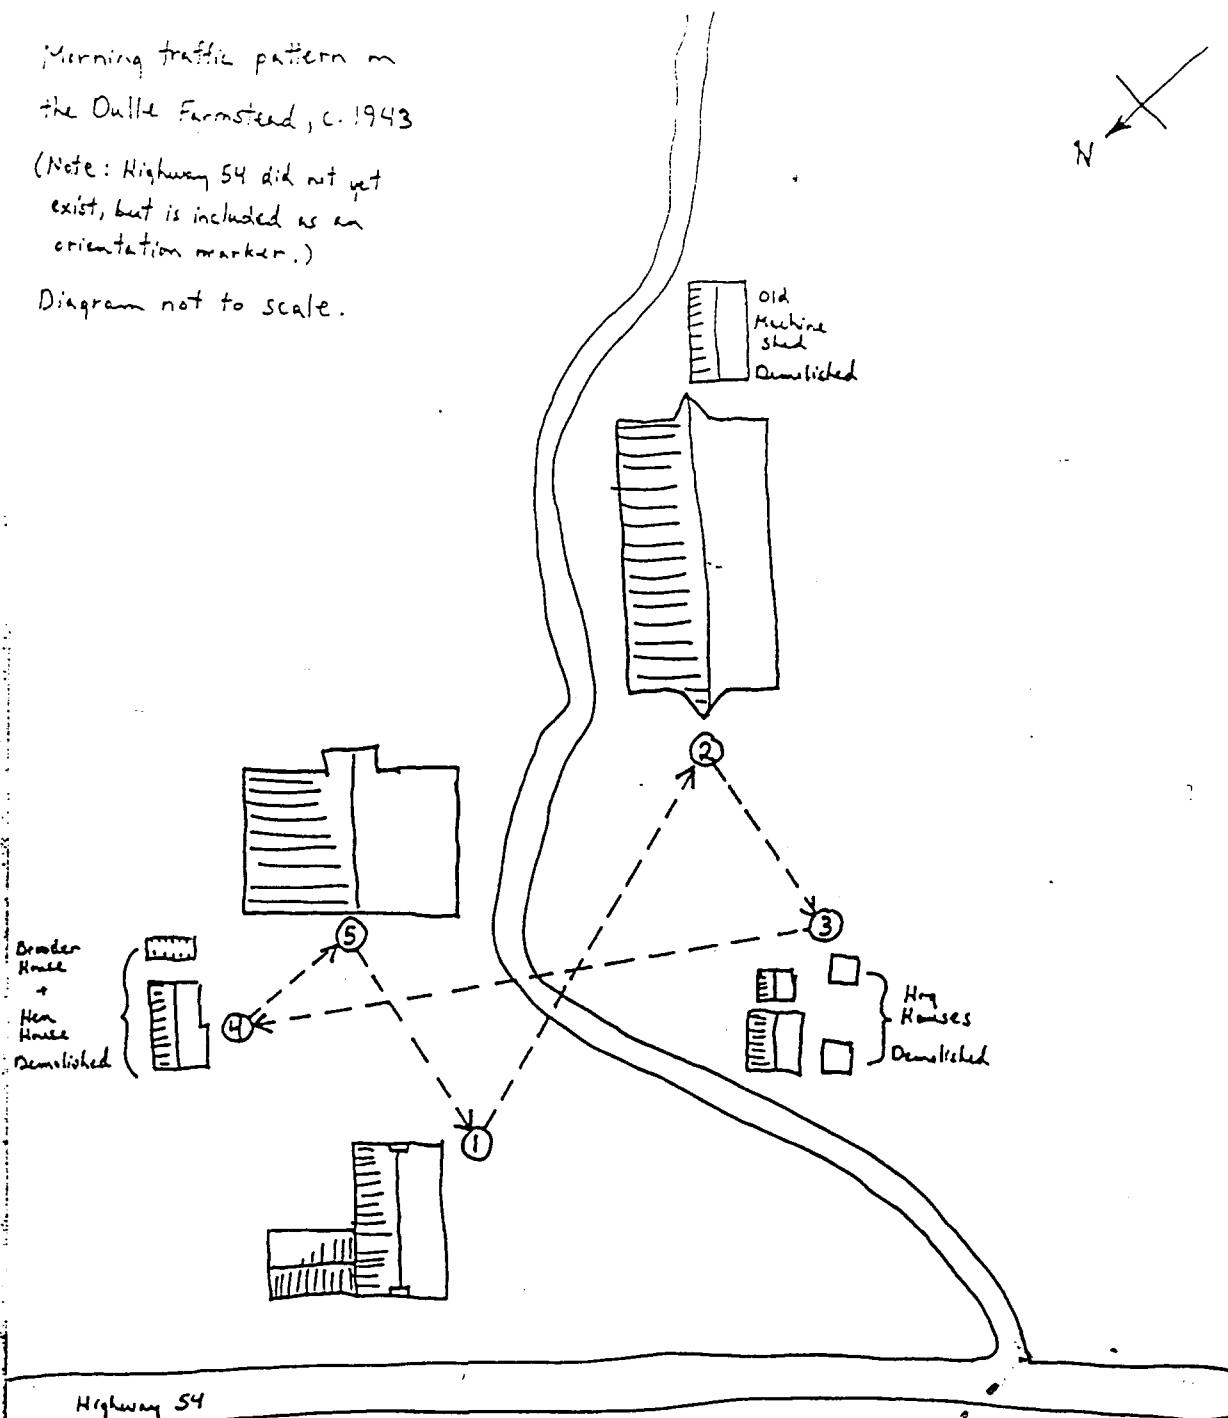 Morning traffic pattern on
the Dulle Farmstead, c. 1943
(Note: Highway 54 did not yet
exist, but is included as an
orientation marker.)
Diagram not to scale.
N
Old
Machine
Shed
Demolished
2
3
5
4
1
Brooder
House
+
Hen
House
Demolished
Hog
Houses
Demolished
Highway 54